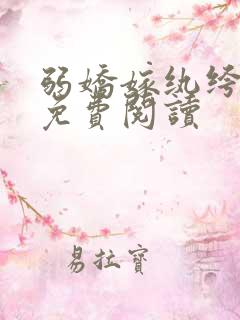 弱嬌嫁紈绔
免費閱讀
易拉寶